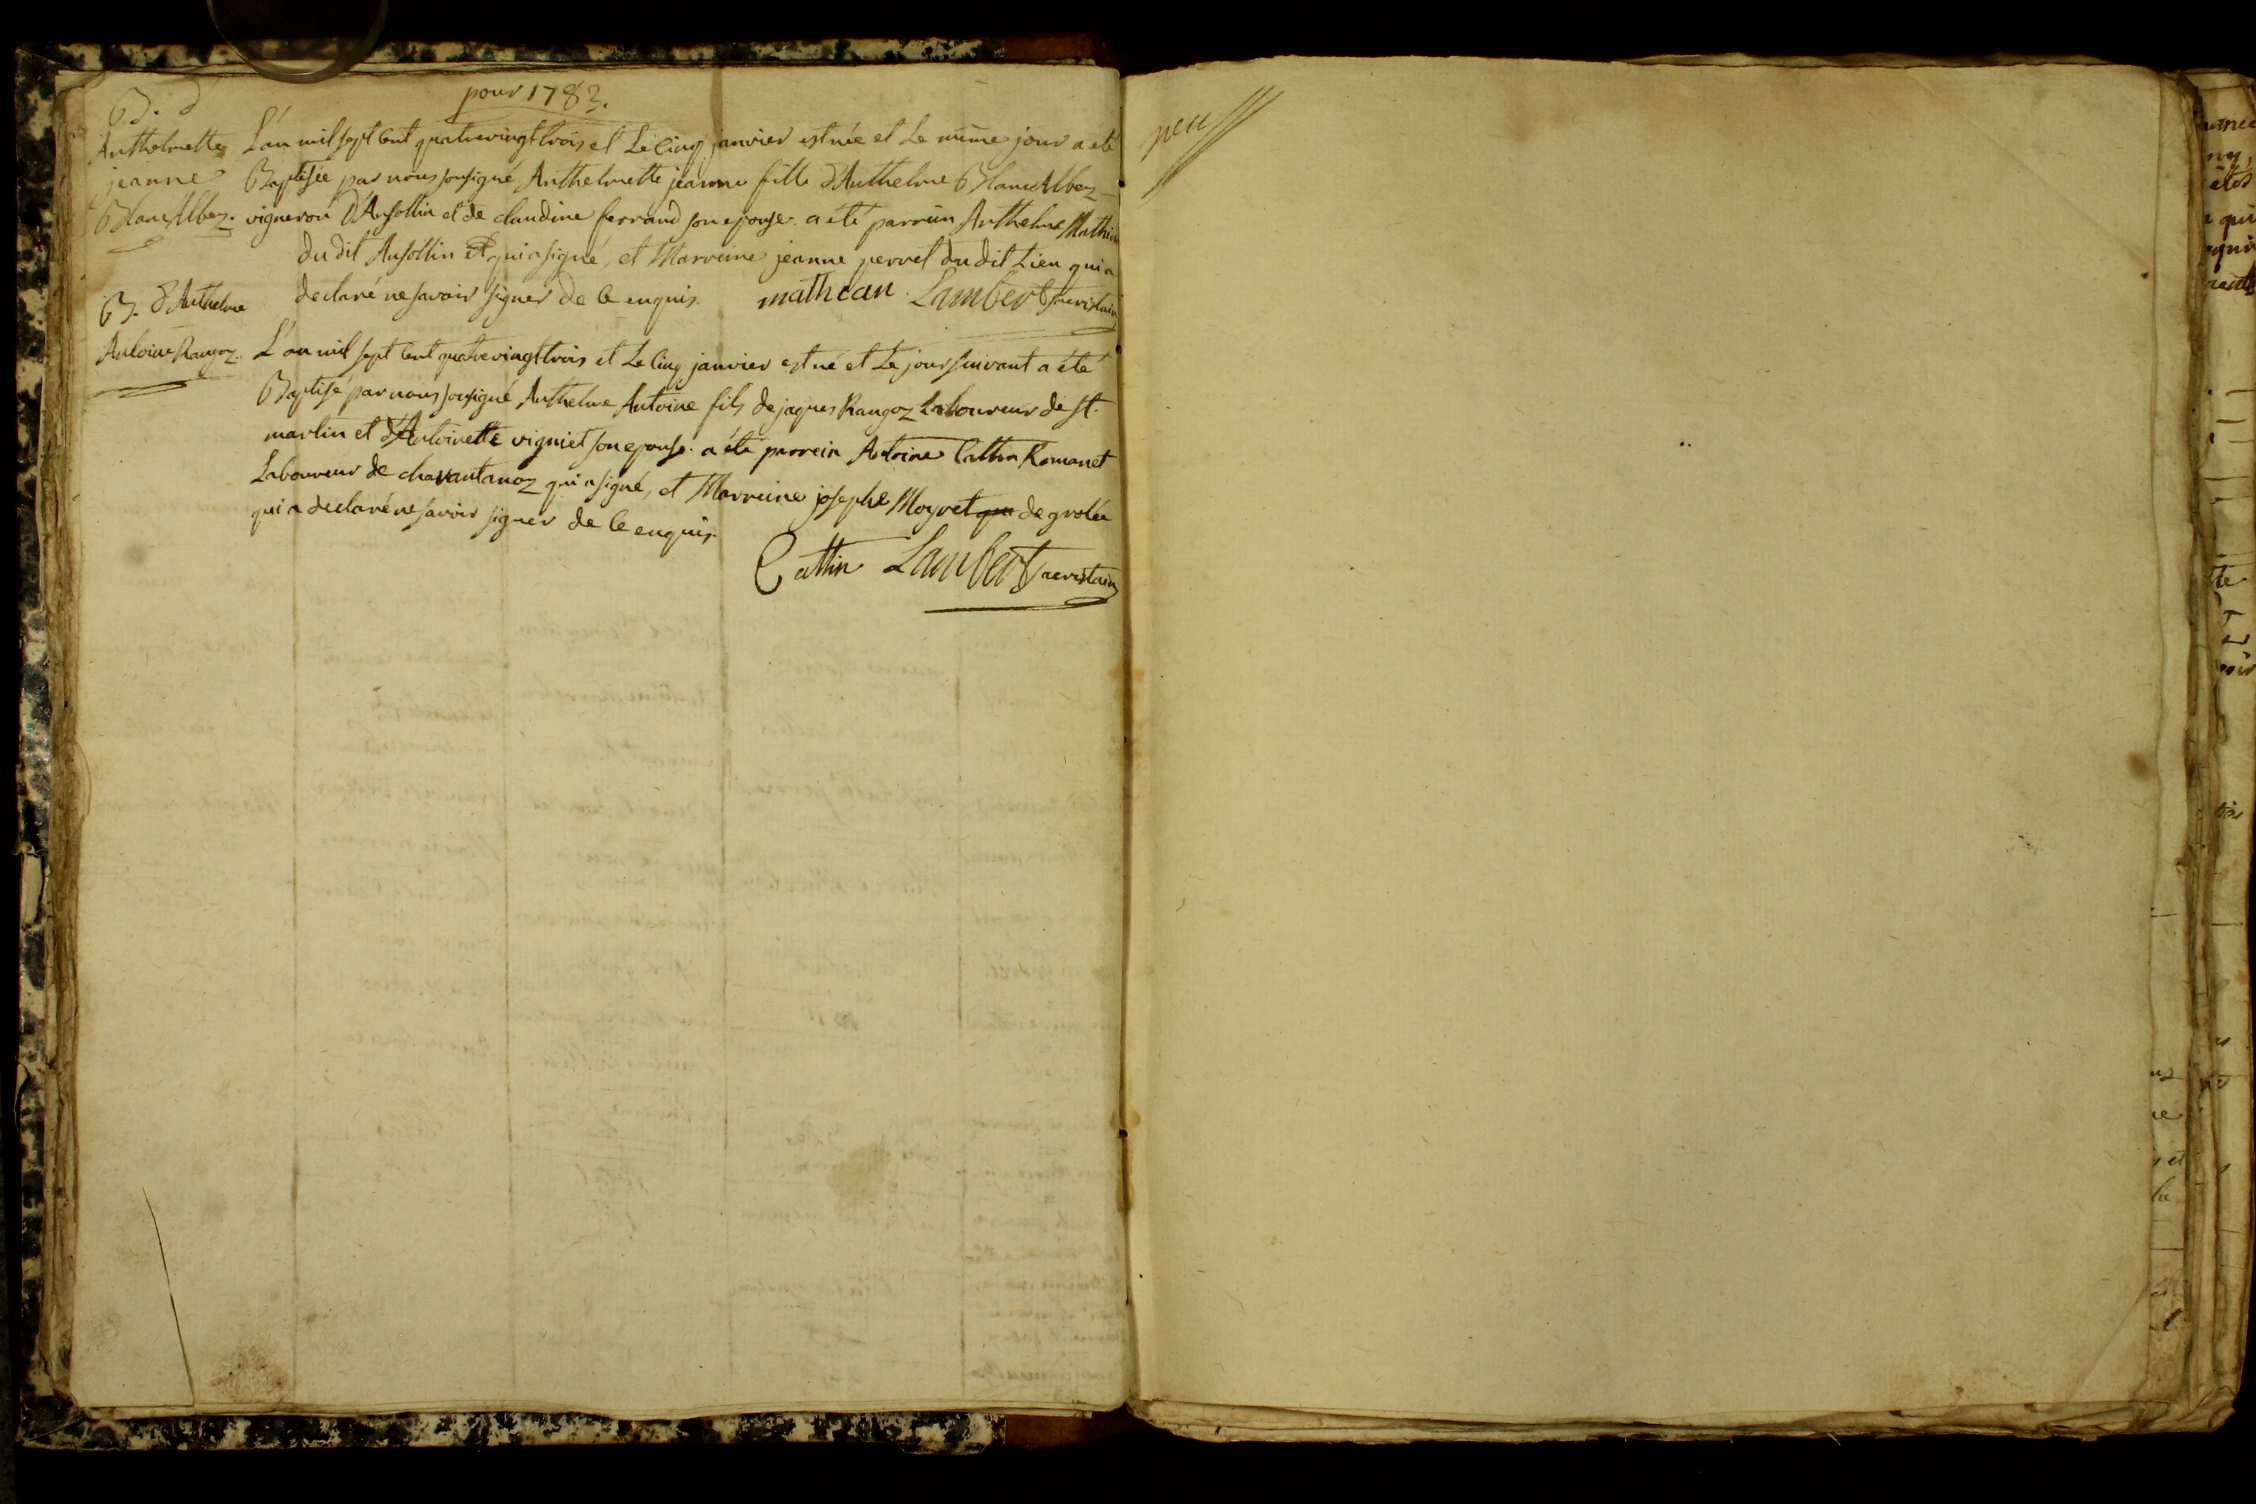 pour 1783.
B. d'
Anthelmette
jeanne
Blanc Alber.
L'an mil sept cent quatrevingt trois et Le cinq janvier est née et Le même jour a été
Baptisée par nous sousigné Anthelmette jeanne fille d'Anthelme Blanc Alber
vigneron D'Ansollin et de claudine ferrand son epouse. a été parrein Anthelme Mathieu
du dit Ansollin qui a signé, et Marreine jeanne perret du dit Lieu qui a
declaré ne savoir signer de ce enquis. mathean Lambert sacristain
B. d'Anthelme
Antoine Rangoz.
L'an mil sept cent quatrevingt trois et Le cinq janvier est né et Le jour suivant a été
Baptisé par nous sousigné Anthelme Antoine fils de jaques Rangoz Laboureur de st.
martin et d'Antoinette vigniet son epouse. a été parrein Antoine Cattin Romanet
Laboureur de chavantanoz qui a signé, et Marreine josephe Moyret qui de grolée
qui a declaré ne savoir signer de ce enquis.
Cattin Lambert sacristain